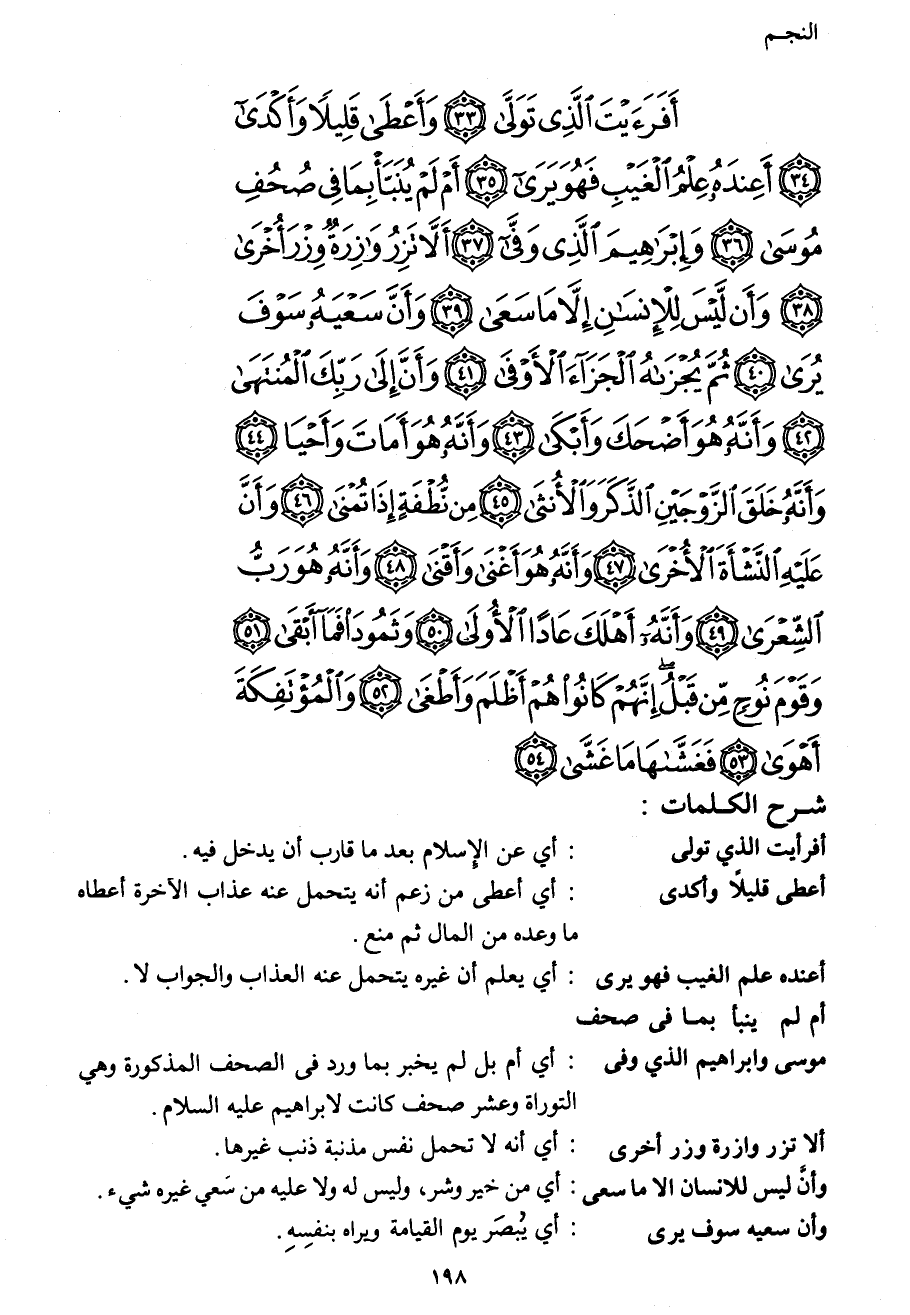 النجـم
أَفَرَءَيْتَ ٱلَّذِى تَوَلَّىٰ ٣٣ وَأَعْطَىٰ قَلِيلًا وَأَكْدَىٰٓ
٣٤ أَعِندَهُۥ عِلْمُ ٱلْغَيْبِ فَهُوَ يَرَىٰٓ ٣٥ أَمْ لَمْ يُنَبَّأْ بِمَا فِى صُحُفِ
مُوسَىٰ ٣٦ وَإِبْرَٰهِيمَ ٱلَّذِى وَفَّىٰٓ ٣٧ أَلَّا تَزِرُ وَازِرَةٌ وِزْرَ أُخْرَىٰ
٣٨ وَأَن لَّيْسَ لِلْإِنسَٰنِ إِلَّا مَا سَعَىٰ ٣٩ وَأَنَّ سَعْيَهُۥ سَوْفَ
يُرَىٰ ٤٠ ثُمَّ يُجْزَىٰهُ ٱلْجَزَآءَ ٱلْأَوْفَىٰ ٤١ وَأَنَّ إِلَىٰ رَبِّكَ ٱلْمُنتَهَىٰ
٤٢ وَأَنَّهُۥ هُوَ أَضْحَكَ وَأَبْكَىٰ ٤٣ وَأَنَّهُۥ هُوَ أَمَاتَ وَأَحْيَا ٤٤
وَأَنَّهُۥ خَلَقَ ٱلزَّوْجَيْنِ ٱلذَّكَرَ وَٱلْأُنثَىٰ ٤٥ مِن نُّطْفَةٍ إِذَا تُمْنَىٰ ٤٦ وَأَنَّ
عَلَيْهِ ٱلنَّشْأَةَ ٱلْأُخْرَىٰ ٤٧ وَأَنَّهُۥ هُوَ أَغْنَىٰ وَأَقْنَىٰ ٤٨ وَأَنَّهُۥ هُوَ رَبُّ
ٱلشِّعْرَىٰ ٤٩ وَأَنَّهُۥٓ أَهْلَكَ عَادًا ٱلْأُولَىٰ ٥٠ وَثَمُودَا۟ فَمَآ أَبْقَىٰ ٥١
وَقَوْمَ نُوحٍ مِّن قَبْلُ ۖ إِنَّهُمْ كَانُوا۟ هُمْ أَظْلَمَ وَأَطْغَىٰ ٥٢ وَٱلْمُؤْتَفِكَةَ
أَهْوَىٰ ٥٣ فَغَشَّىٰهَا مَا غَشَّىٰ ٥٤
شـرح الكـلمات :
أفرأيت الذي تولى : أي عن الإسلام بعد ما قارب أن يدخل فيه .
أعطى قليلاً وأكدى : أي أعطى من زعم أنه يتحمل عنه عذاب الآخرة أعطاه
ما وعده من المال ثم منع .
أعنده علم الغيب فهو يرى : أي يعلم أن غيره يتحمل عنه العذاب والجواب لا .
أم لم ينبأ بمـا فى صحف
موسى وابراهيم الذي وفى : أي أم بل لم يخبر بما ورد فى الصحف المذكورة وهي
التوراة وعشر صحف كانت لابراهيم عليه السلام .
ألا تزر وازرة وزر أخرى : أي أنه لا تحمل نفس مذنبة ذنب غيرها.
وأنَّ ليس للانسان الا ما سعى : أي من خير وشر، وليس له ولا عليه من سَعي غيره شيء .
وأن سعيه سوف يرى : أي يُبصَر يوم القيامة ويراه بنفسِهِ .
١٩٨